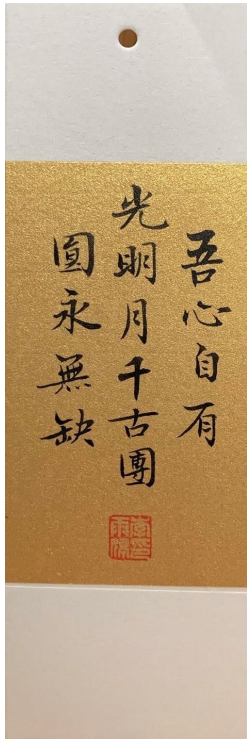 吾心自有
光明月千古團
圓永無缺